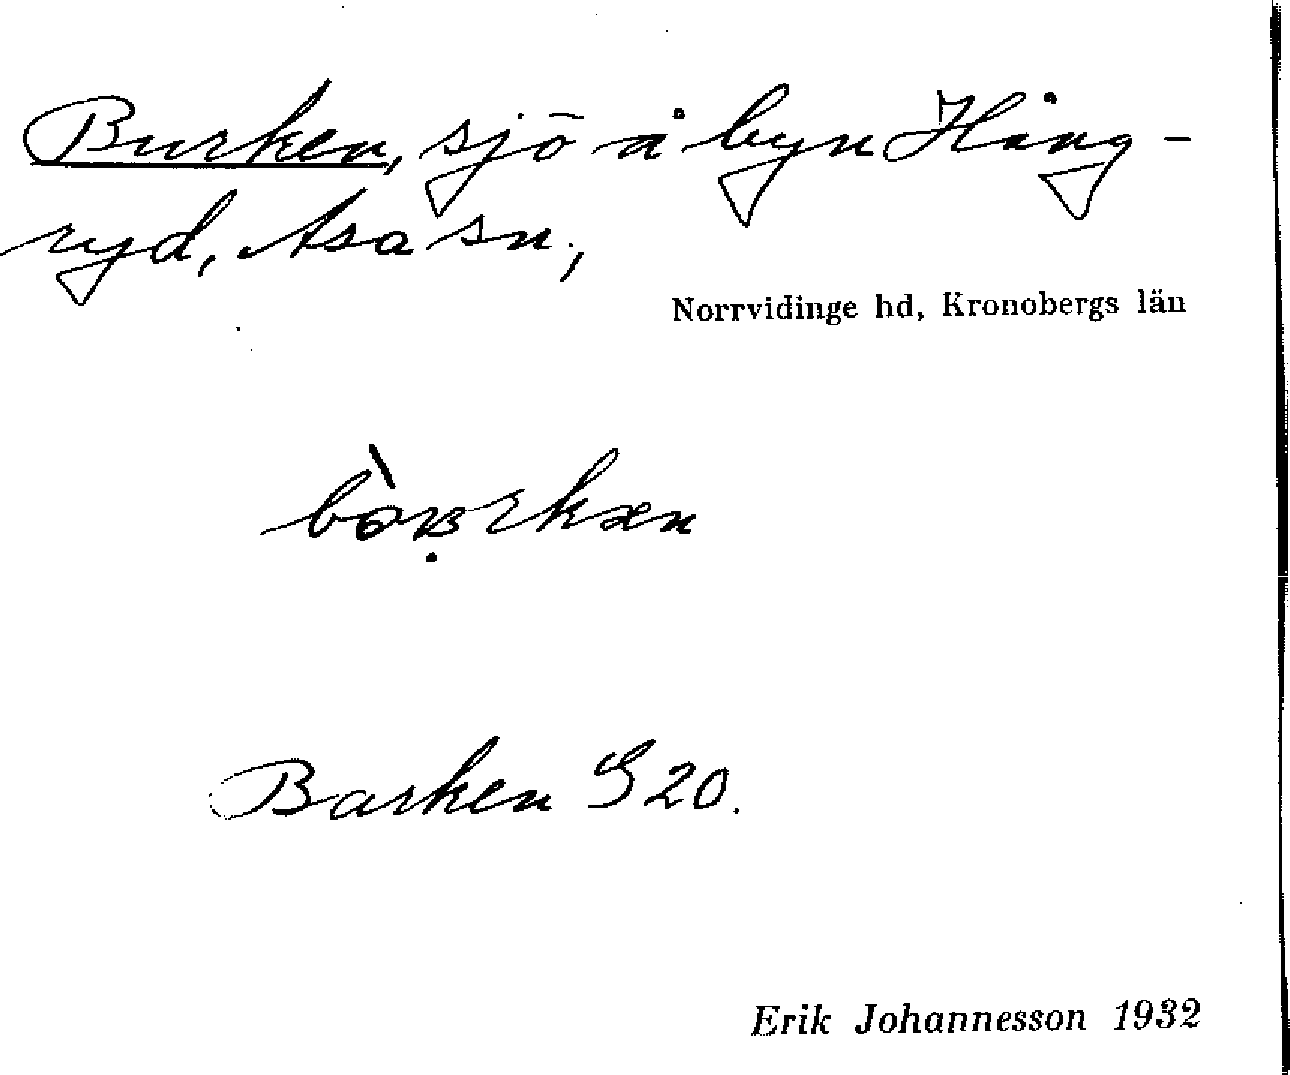 Burken, sjö å byn Häng-
ryd, Asa sn.,
Norrvidinge hd, Kronobergs län
Barken S 20.
Erik Johannesson 1932